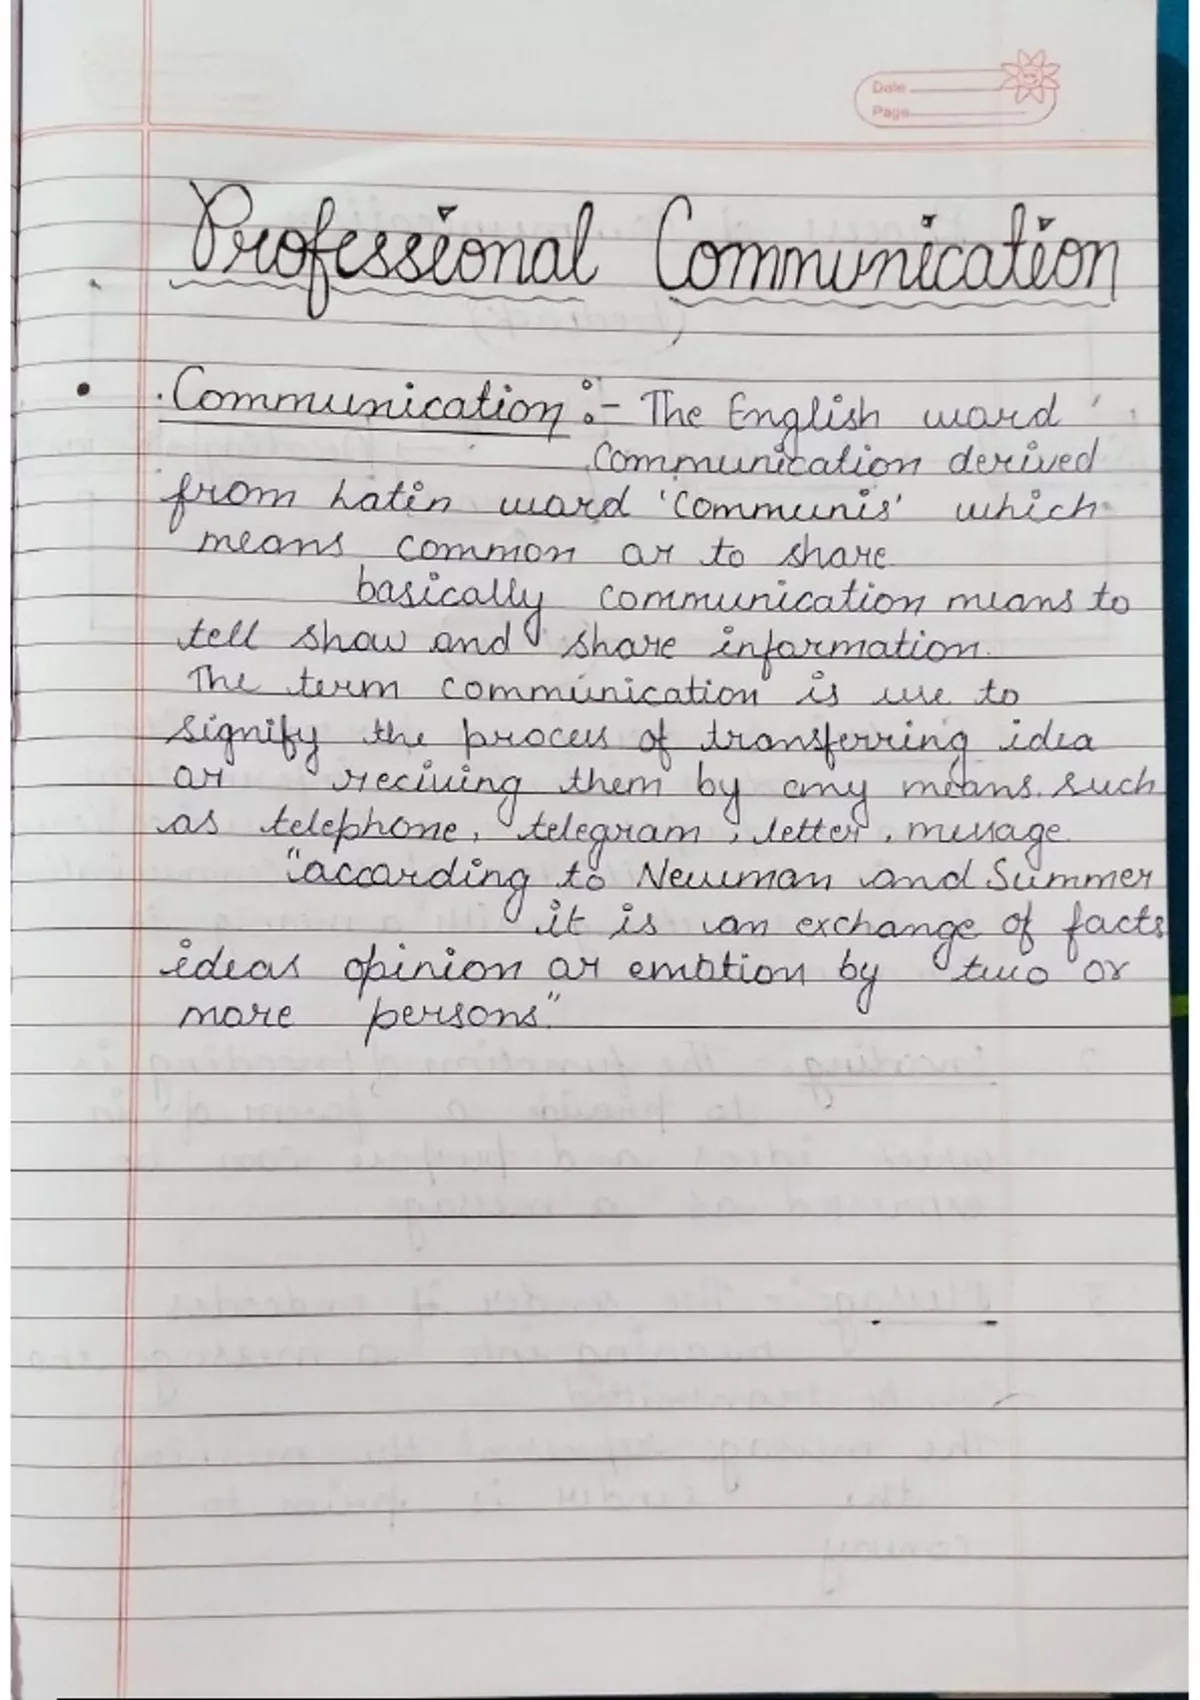 Date
Page
Professional Communication
• Communication :- The English word
communication derived
from Latin word 'Communis' which
means common or to share
basically communication means to
tell show and share information.
The term communication is use to
signify the process of transferring idea
or reciving them by any means. such
as telephone, telegram, letter, message
"according to Newman and Summer
it is an exchange of facts
ideas opinion or emotion by two or
more persons"